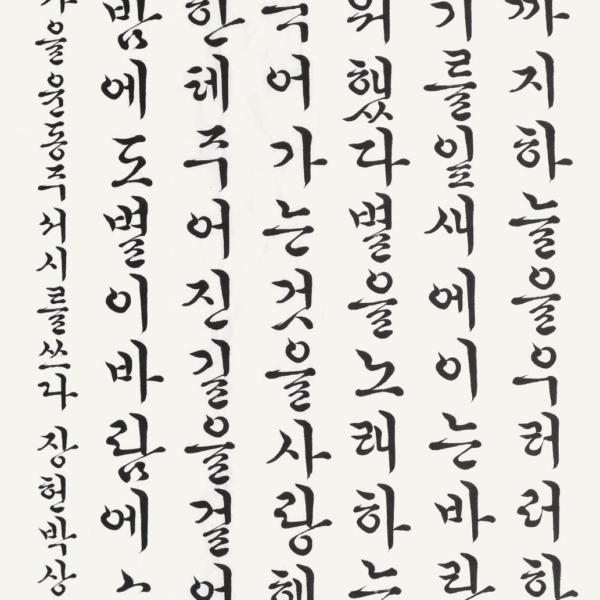 까지하늘을우러러하
기를잎새에이는바라
워했다별을노래하는
어가는것을사랑해
한테주어진길을걸어
밤에도별이바람에
을윤동주서시를쓰다 장헌박상